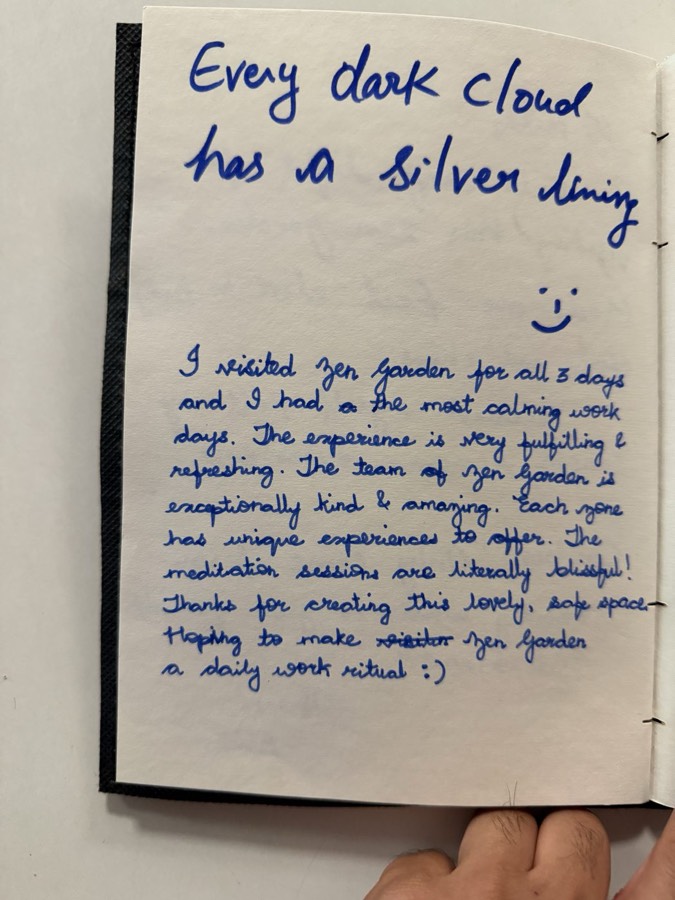 Every dark cloud
has a silver lining
I visited Zen Garden for all 3 days
and I had the most calming work
days. The experience is very fulfilling &
refreshing. The team of Zen Garden is
exceptionally kind & amazing. Each zone
has unique experiences to offer. The
meditation sessions are literally blissful!
Thanks for creating this lovely, safe space.
Hoping to make Zen Garden
a daily work ritual :)